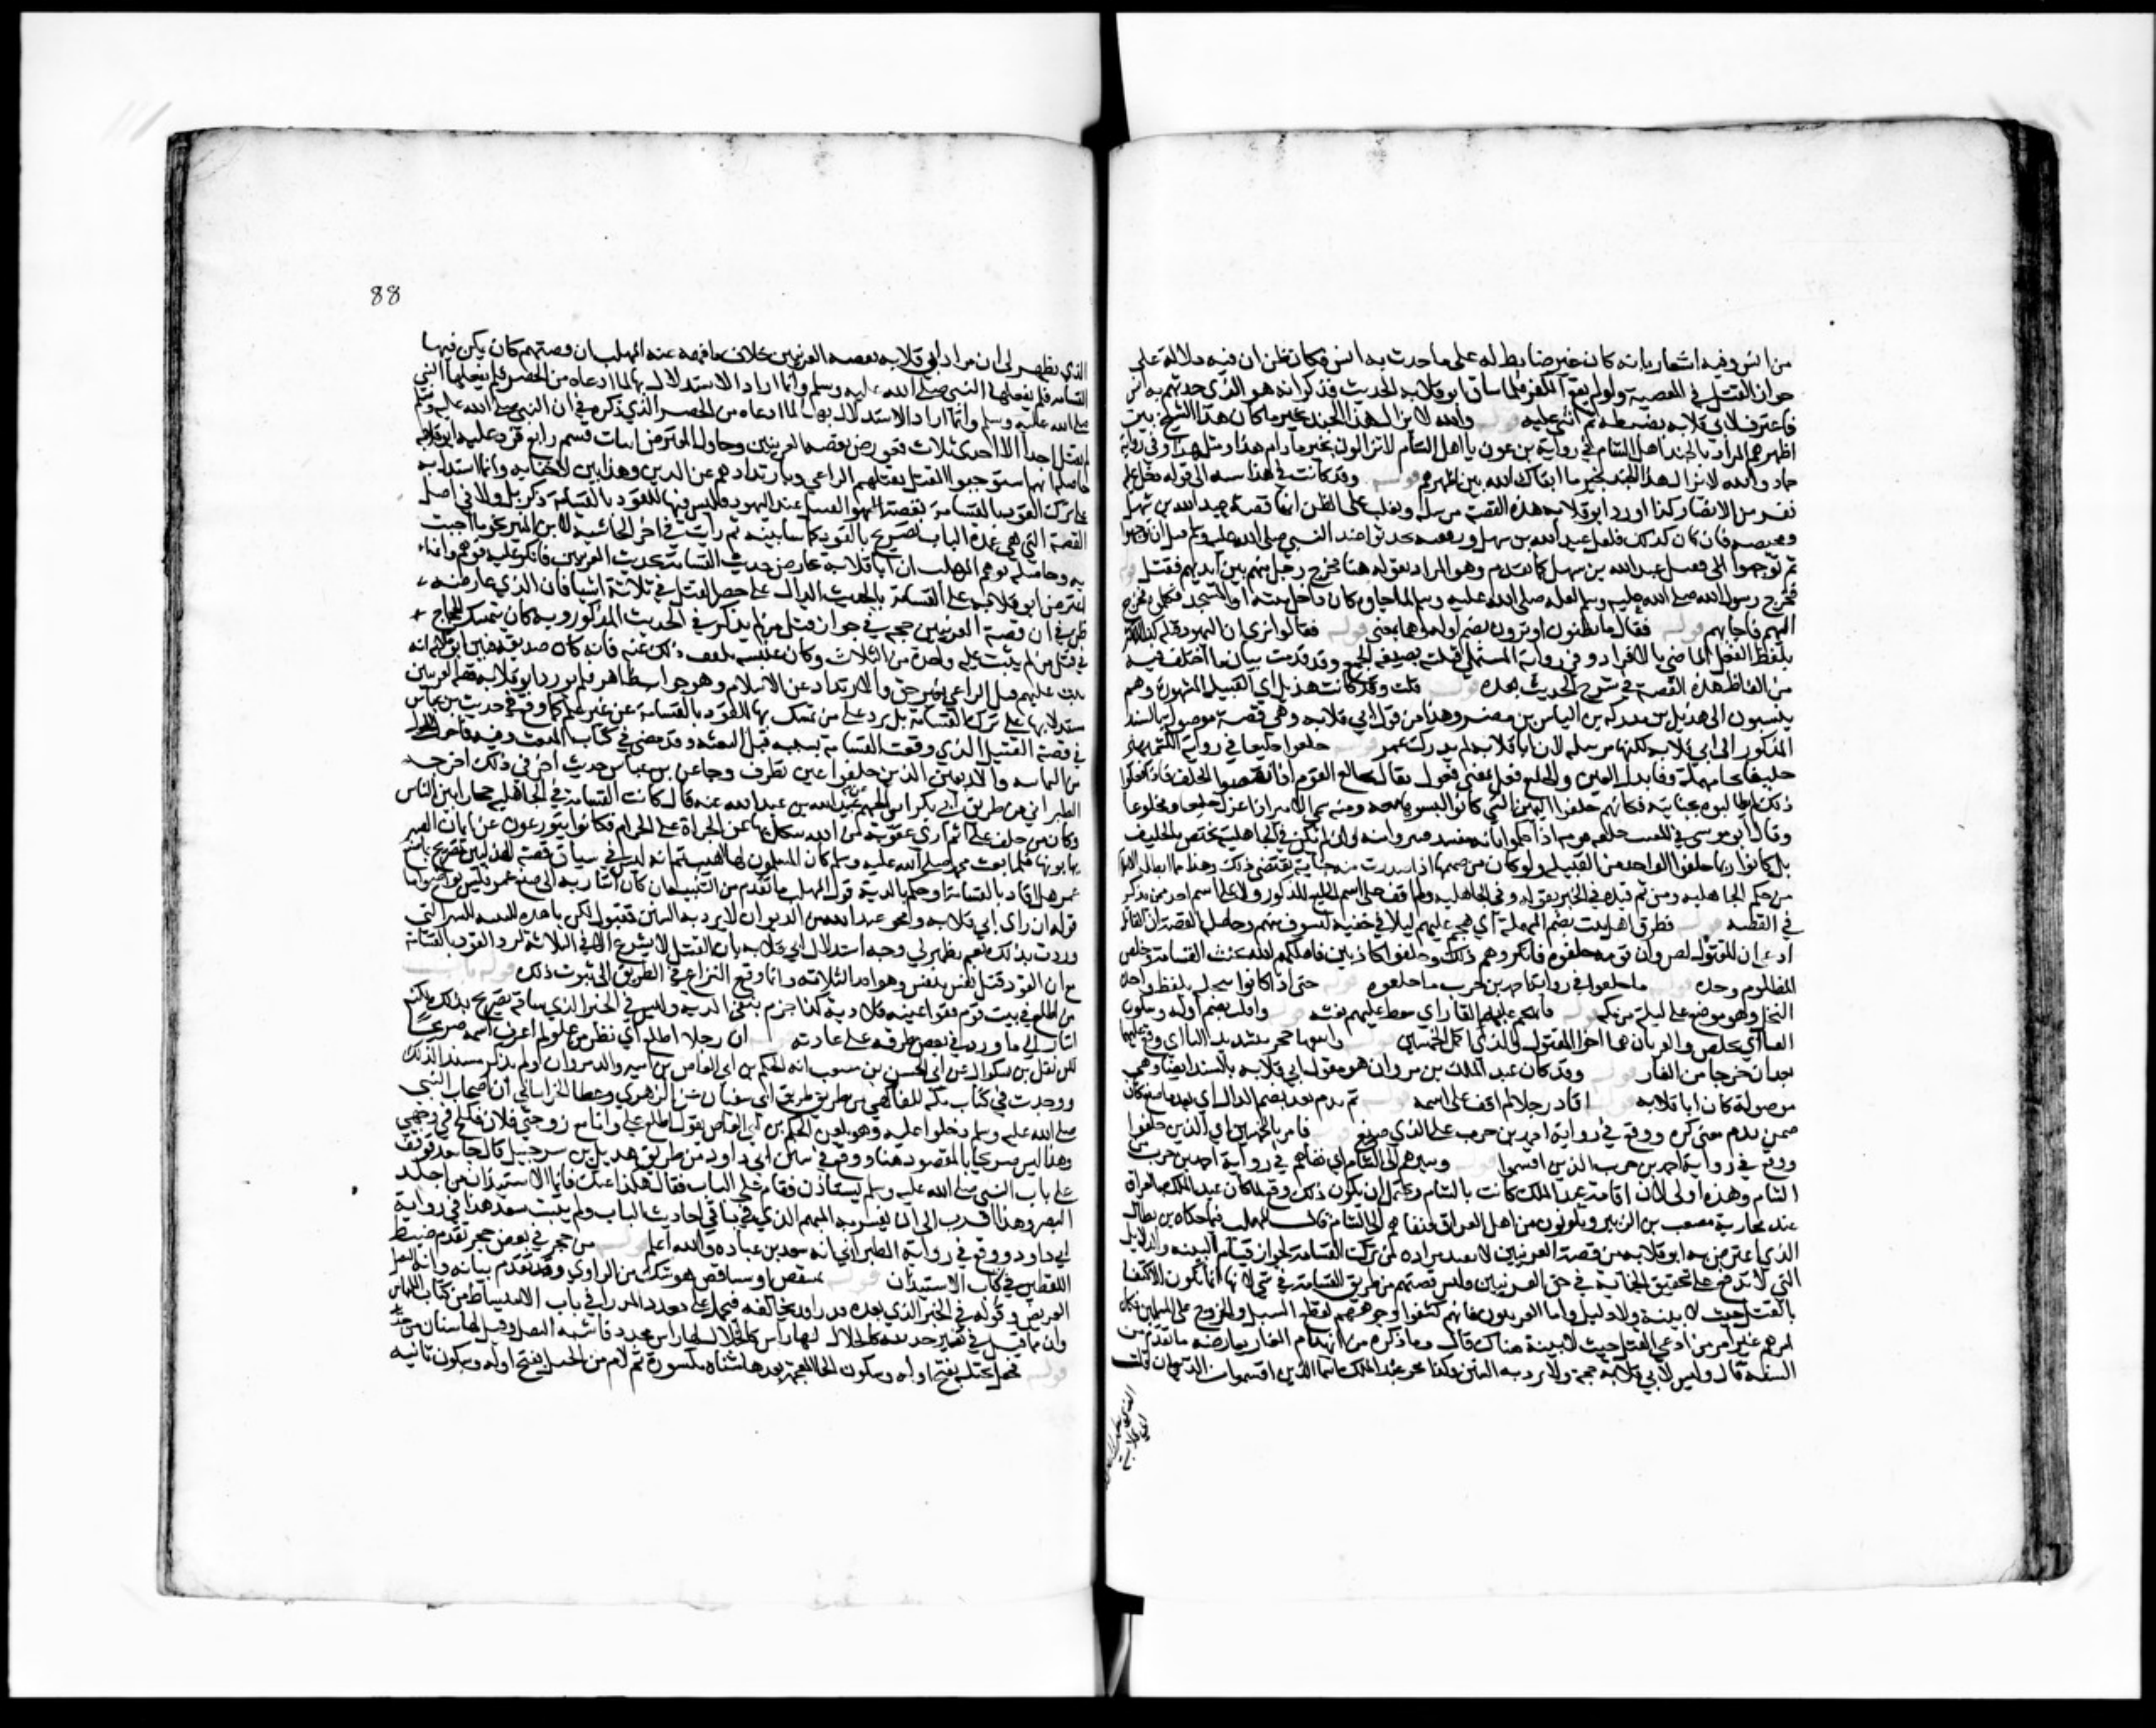 من انس وفيه اشعار بانه كان غير ضابط له على ما حدث به انس فكان يظن ان فيه دلالة على
جواز القتل في المعصية ولو لم يقع الكفر فلما ساق ابو قلابة الحديث تذكر انه هو الذي حدثهم به انس
فاعترف لابي قلابة بضبطه ثم اثنى عليه قوله والله لا يزال هذا الجند بخير ما كان هذا الشيخ بين
اظهرهم المراد بالجند اهل الشام في رواية بن عون يا اهل الشام لا تزالون بخير ما دام فيكم هذا او مثل هذا وفي رواية
حماد والله لا يزال هذا الجند بخير ما ابقاك الله بين اظهرهم قوله وقد كانت في هذا سنة الى قوله دخل عليه
نفر من الانصار كذا اورد ابو قلابة هذه القصة مرسلة ويغلب على الظن انها قصة عبد الله بن سهل
ومحيصة فان كان كذلك فلعل عبد الله بن سهل ورفقته تحدثوا عند النبي صلى الله عليه وسلم قبل ان يتوجهوا
ثم توجهوا الى خيبر عبد الله بن سهل كما تقدم وهو المراد بقوله هنا فخرج رجل منهم بين ايديهم فقتل قوله
فخرج رسول الله صلى الله عليه وسلم لعله صلى الله عليه وسلم لما جاؤه كان داخل بيته او المسجد فكلموه فخرج
اليهم فاجابهم قوله فقال بمن تظنون او ترون بضم اوله وهما بمعنى قوله قالوا نرى ان اليهود قتله كذا للاكثر
بلفظ الفعل الماضي بالافراد وفي رواية المستملي قتلته بصيغة الجمع وقد قدمت بيان ما اختلف فيه
من الفاظ هذه القصة في شرح الحديث بعده قوله قلت وقد كانت هذيل اي القبيلة المشهورة وهم
ينسبون الى هذيل بن مدركة بن الياس بن مضر وهذا من قول ابي قلابة وهي قصة موصولة بالسند
المذكور الى ابي قلابة لكنها مرسلة لان ابا قلابة لم يدرك عمر قوله خلعوا خليعا في رواية الكشميهني
حليفا بحاء مهملة وفاء بدل العين والخليع فعيل بمعنى مفعول يقال تخالع القوم اذا نقضوا الحلف فاذا فعلوا
ذلك لم يطالبوه بجناية فكانهم خلعوا اليمين التي كانوا لبسوها معه ومنه سمي الامير اذا عزل خليعا ومخلوعا
وقال ابو موسى في المعين خلعه قومه اذا حكموا بانه مفسد متبرؤا منه ولم يكن في الجاهلية يختص بالحليف
بل كانوا ربما خلعوا الواحد من القبيلة ولو كان من صميمها اذا صدرت منه جناية تقتضي ذلك وهذا مما ابطله الاسلام
من حكم الجاهلية ومن ثم قيده في الخبر بقوله في الجاهلية ولم اقف على اسم الخليع المذكور ولا على اسم احد ممن ذكر
في القصة قوله فطرق اهل بيت بضم المهملة اي هجم عليهم ليلا في خفية ليسرق منهم وحاصل القصة ان القاتل
ادعى ان المقتول لص وان قومه خلعوه فانكروهم ذلك وحلفوا كاذبين فاهلكهم الله بحنث القسامة وخلص
المظلوم وحده قوله ما خلعوا في رواية احمد بن حرب ما خلعوه قوله حتى اذا كانوا بنخلة بلفظ واحدة
النخل وهو موضع على ليلة من مكة قوله فانهجم عليهم الغار اي سقط عليهم بغتة قوله وافلت بضم اوله وسكون
الفاء اي تخلص والقرينان هما اخو المقتول والذي اكمل الخمسين قوله واتبعهما حجر بتشديد التاء اي وقع عليهما
بعد ان خرجا من الغار قوله وقد كان عبد الملك بن مروان هو مقول ابي قلابة بالسند ايضا وهي
موصولة كان ابا قلابة قوله اقاد رجلا لم اقف على اسمه قوله ثم ندم بعد بضم الدال اي بعد ما صنع كان
ضمن ندم معنى كره ووقع في رواية احمد بن حرب على الذي صنع قوله فامر بالخمسين اي الذين حلفوا
ووقع في رواية احمد بن حرب الذين اقسموا قوله وسيرهم الى الشام اي نفاهم في رواية احمد بن حرب من
الشام وهذه اولى لان اقامة عبد الملك كانت بالشام ويحتمل ان يكون ذلك وقع لما كان عبد الملك بالعراق
عند محاربة مصعب بن الزبير ويكونون من اهل العراق فنفاهم الى الشام قال المهلب فيما حكاه بن بطال
الذي اعترض به ابو قلابة من قصة العرنيين لا يفيد مراده من ترك القسامة لجواز قيام البينة والدلايل
التي لا تدفع على تحقيق الجناية في حق العرنيين وليس قصتهم من طريق القسامة في شيء لانها انما تكون الاختفاء
بالقتل حيث لا بينة ولا دليل واما العرنيون فانهم كشفوا وجوههم لقطع السبيل والخروج على المسلمين فكان
امرهم غير امر من ادعى القتل حيث لا بينة هناك قال وما ذكره من انهدام الغار يعارضه ما تقدم من
السنة قال وليس راي ابي قلابة حجة ولا ترد به السنن وكذا محو عبد الملك اسماء الذين اقسموا من الديوان قلت
88
الذي يظهر لي ان مراد ابي قلابة بقصة العرنيين خلاف ما فهمه عنه المهلب ان قصتهم كان يمكن فيها
القسامة فلم يفعلها النبي صلى الله عليه وسلم وانما اراد الاستدلال بها لما ادعاه من الحصر فلم يفعلها النبي
صلى الله عليه وسلم وانما اراد الاستدلال بها لما ادعاه من الحصر الذي ذكره في ان النبي صلى الله عليه وسلم
لم يقتل احدا الا في احدى ثلاث فعورض بقصة العرنيين وحاول المعترض اثبات قسم رابع فرد عليه ابو قلابة
بما حاصله انهم استوجبوا القتل بقتلهم الراعي وبارتدادهم عن الدين وهذا بين لا خفاء به وانما استدل به
على ترك القود بالقسامة بقصة القتيل عند اليهود فليس فيها للقود بالقسامة ذكر بل ولا في اصل
القصة التي هي عمدة الباب تصريح بالقود كما سابينه ثم رايت في اخر الحاشية لابن المنير نحو ما اجبت
به وحاصله توهم المهلب ان ابا قلابة عارض حديث القسامة بحديث العرنيين فانكر عليه فوهم وانما
اعترض ابو قلابة على القسامة بالحديث الدال على حصر القتل في ثلاثة اشياء فان الذي عارضه
ظن في ان قصة العرنيين حجة في جواز قتل من لم يذكر في الحديث المذكور وبه كان يتمسك الحجاج
في قتل من لم يثبت عليه واحدة من الثلاث وكان عنبسة تلقف ذلك عنه فانه كان صديقه فبين ابو قلابة انه
ثبت عليهم قتل الراعي بغير حق والارتداد عن الاسلام وهو جواب ظاهر فلم يورد ابو قلابة قصة العرنيين
مستدلا بها على ترك القسامة بل رد على من تمسك بها للقود بالقسامة
في قصة القتيل الذي وقعت القسامة بسببه قبل البعثة وقد مضى في كتاب المبعث
الطبراني من طريق ابي بكر بن ابي الجهم عن عبيد الله بن عبد الله عنه قال كانت القسامة في الجاهلية حجازا بين الناس
وكان من حلف على اثم اري عقوبة من الله ينكل بها عن الجراة على الحرام فكانوا يتورعون عن ايمان الصبر
ويهابونها فلما بعث محمد صلى الله عليه وسلم كان المسلمون لها اهيب ثم انه ليس في سياق قصة الهذليين تصريح بما صنع
عمر هل اقاد بالقسامة او حكم بالدية
قوله ان راي ابي قلابة ومحو عبد الملك من الديوان لا ترد به السنن فمقبول لكن ما هذه السنة التي
وردت بذلك نعم يظهر لي وجه استدلال ابي قلابة بان القتل لا يشرع الا في الثلاثة لرد القود بالقسامة
مع ان القود قتل نفس بنفس وهو احد الثلاثة وانما وقع النزاع في الطريق الى ثبوت ذلك قوله باب
من اطلع في بيت قوم ففقؤا عينه فلا دية له كذا جزم بنفي الدية وليس في الخبر الذي ساقه تصريح بذلك لكنه
اشار الى ما ورد في بعض طرقه على عادته قوله ان رجلا اطلع اي نظر من علو ولم اعرف اسمه صريحا
لكن نقل بن بشكوال عن ابي الحسن بن مغيث انه الحكم بن ابي العاص بن امية والد مروان ولم يذكر مستندا لذلك
ووجدت في كتاب مكة للفاكهي من طريق ابي سفيان عن الزهري وعطاء الخراساني ان اصحاب النبي
صلى الله عليه وسلم دخلوا عليه وهو يلعن الحكم بن ابي العاص يقول اطلع علي وانا مع زوجتي فلانة فكلح في وجهي
وهذا ليس صريحا بالمقصود هنا ووقع في سنن ابي داود من طريق هذيل بن شرحبيل قال جاء سعد فوقف
على باب النبي صلى الله عليه وسلم يستاذن فقام على الباب فقال هكذا عنك فانما الاستئذان من اجل
البصر وهذا اقرب الى ان يفسر به المبهم الذي في باقي احاديث الباب ولم ينسب سعد هذا في رواية
ابي داود ووقع في رواية الطبراني انه سعد بن عبادة والله اعلم قوله من حجر في بعض حجر تقدم ضبط
اللفظين في كتاب الاستئذان قوله بمشقص او مشاقص هو شك من الراوي وقد تقدم بيانه وانه النصل
العريض وقوله في الخبر الذي بعده مدرا وبه يخالفه فيحمل على تعدد المدرا في باب الامتشاط من كتاب اللباس
وان مما قيل في تفسيره حديدة كالخلال لها راس محدد
قوله فجعل يختله بفتح اوله وسكون الخاء المعجمة بعدها مثناة مكسورة ثم لام من الختل بفتح اوله وسكون ثانيه